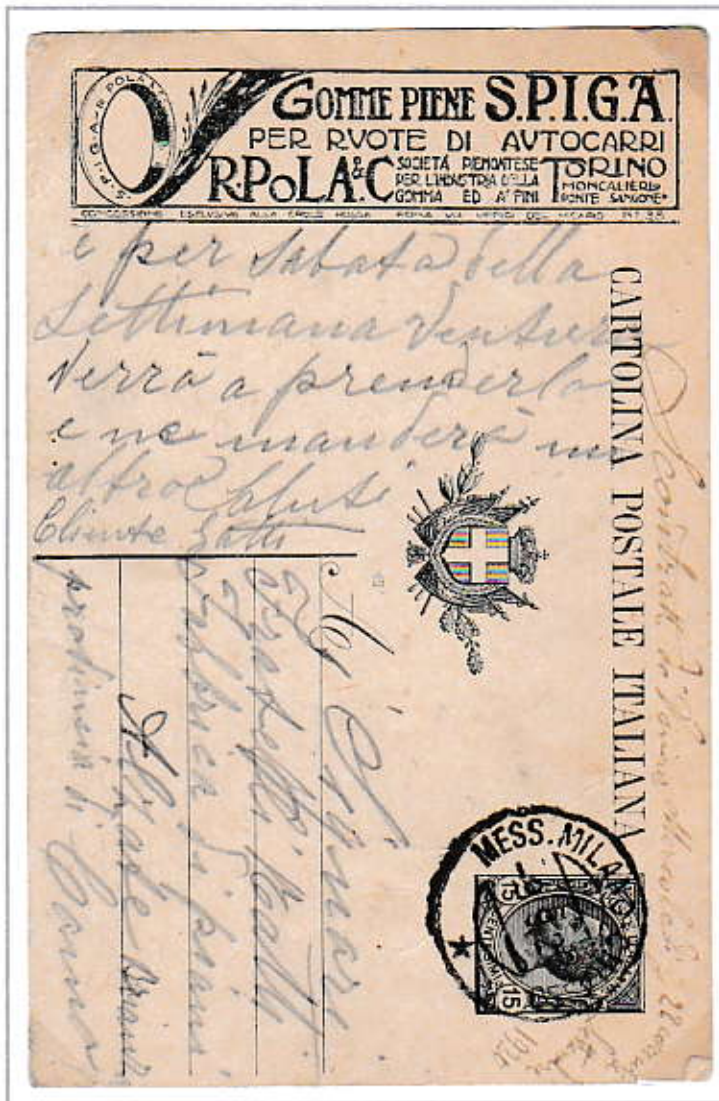 S.P.I.G.A. R POLA & C
GOMME PIENE S.P.I.G.A.
PER RUOTE DI AUTOCARRI
R.POLA & C SOCIETÀ PIEMONTESE PER L'INDUSTRIA DELLA GOMMA ED AFFINI TORINO MONCALIERI PONTE SANGONE
CONCESSIONE ESCLUSIVA ALLA CROCE ROSSA ROMA VIA UFFICI DEL VICARIO
e per Sabata della
Settimana Ventura
Verrà a prenderlo
e ne manderà un
altro Saluti
Cliente Gatti
CARTOLINA POSTALE ITALIANA
Ai Signori
Fratelli
Fabbrica di
Alzate Brianz
provincia di Como
MESS. MILA
15 15
1920